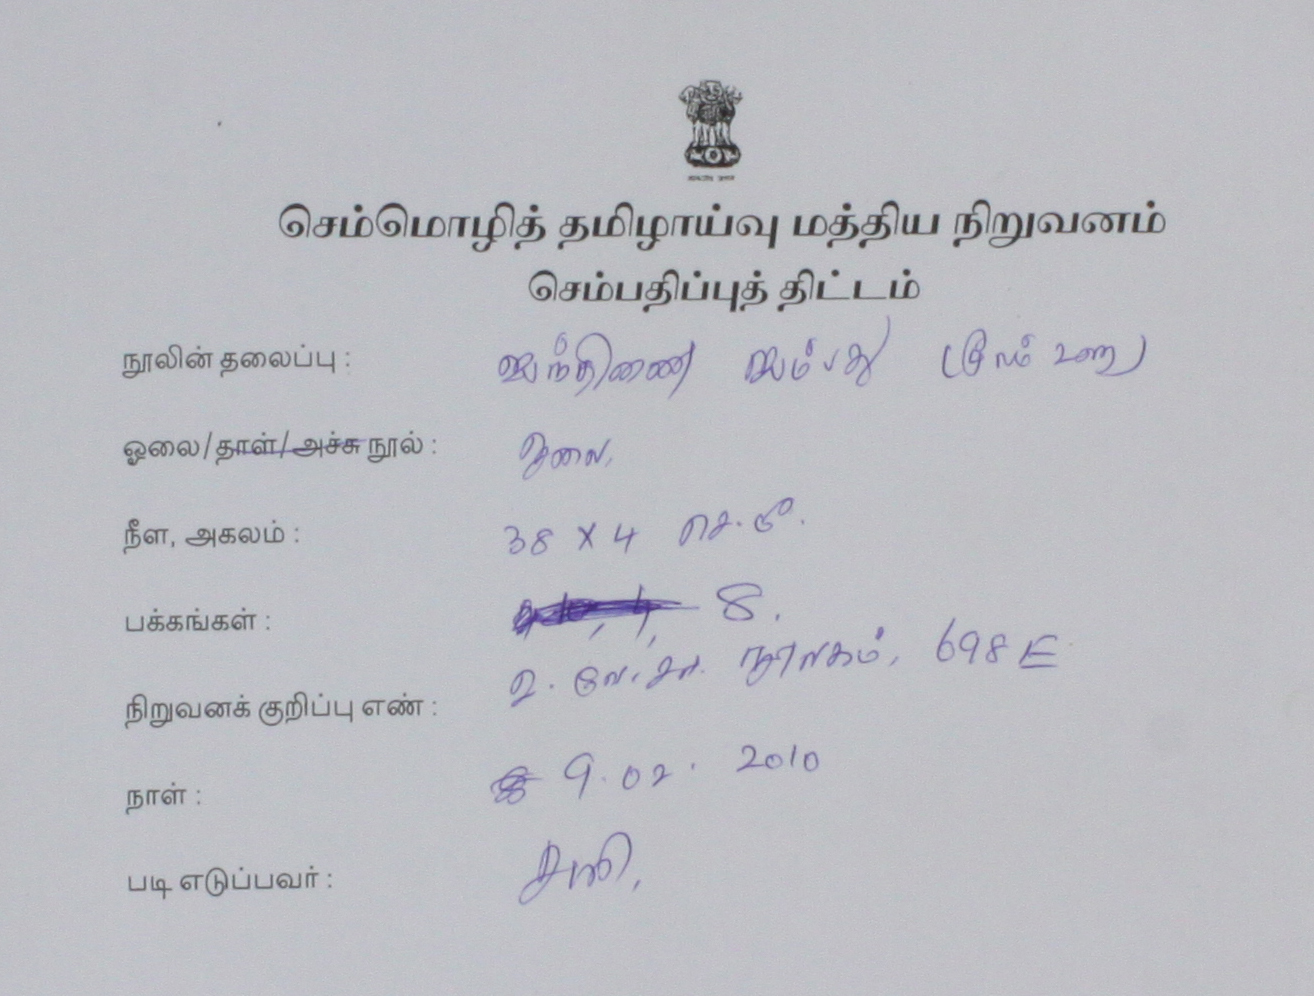 செம்மொழித் தமிழாய்வு மத்திய நிறுவனம்
செம்பதிப்புத் திட்டம்
நூலின் தலைப்பு : ஐந்திணை ஐம்பது (மூலம் உரை)
ஓலை/தாள்/அச்சு நூல் : ஓலை.
நீள, அகலம் : 38 X 4 செ.மீ.
பக்கங்கள் : 8.
நிறுவனக் குறிப்பு எண் : உ.வே.சா. நூலகம், 698 E
நாள் : 9.02.2010
படி எடுப்பவர் :